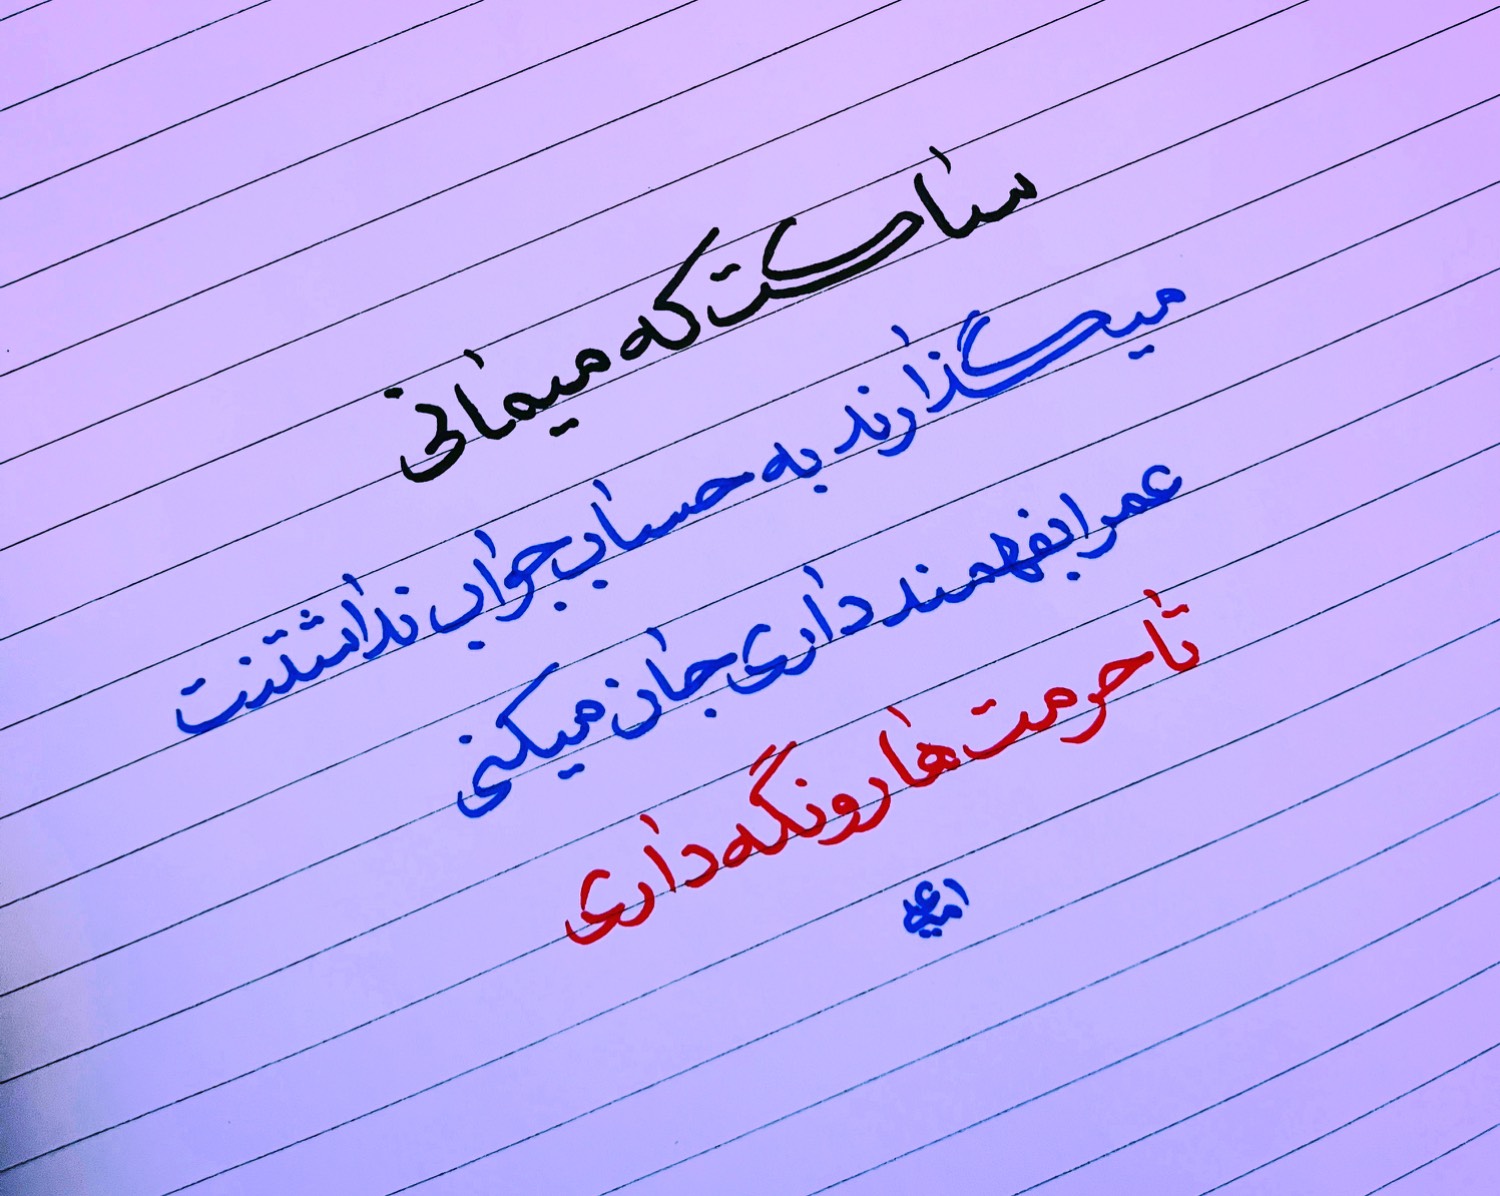 ساکت که میمانی
میگذارند به حساب جواب نداشتنت
عمرا بفهمند داری جان میکنی
تا حرمت ها رو نگه داری